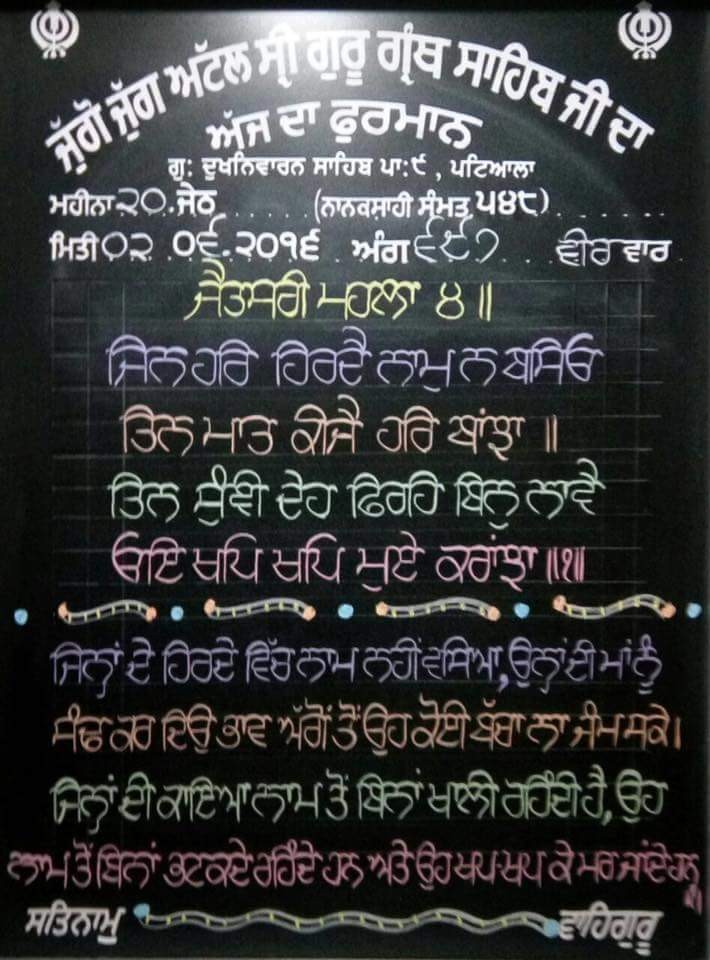 ਜੁੱਗੋ ਜੁੱਗ ਅਟੱਲ ਸ੍ਰੀ ਗੁਰੂ ਗ੍ਰੰਥ ਸਾਹਿਬ ਜੀ ਦਾ
ਅੱਜ ਦਾ ਫੁਰਮਾਨ
ਗੁ: ਦੂਖਨਿਵਾਰਨ ਸਾਹਿਬ ਪਾ:੯ , ਪਟਿਆਲਾ
ਮਹੀਨਾ ੨੦ ਜੇਠ (ਨਾਨਕਸ਼ਾਹੀ ਸੰਮਤ ੫੪੮)
ਮਿਤੀ ੦੨ ੦੬.੨੦੧੬ ਅੰਗ ੬੯੭ ਵੀਰ ਵਾਰ
ਜੈਤਸਰੀ ਮਹਲਾ ੪॥
ਜਿਨ ਹਰਿ ਹਿਰਦੈ ਨਾਮੁ ਨ ਬਸਿਓ
ਤਿਨ ਮਾਤ ਕੀਜੈ ਹਰਿ ਬਾਂਝਾ ॥
ਤਿਨ ਸੁੰਞੀ ਦੇਹ ਫਿਰਹਿ ਬਿਨੁ ਨਾਵੈ
ਓਇ ਖਪਿ ਖਪਿ ਮੁਏ ਕਰਾਂਝਾ ॥੧॥
ਜਿਨ੍ਹਾਂ ਦੇ ਹਿਰਦੇ ਵਿੱਚ ਨਾਮ ਨਹੀਂ ਵਸਿਆ, ਉਨ੍ਹਾਂ ਦੀ ਮਾਂ ਨੂੰ
ਸੰਢ ਕਰ ਦਿਉ ਭਾਵ ਅੱਗੋਂ ਤੋਂ ਉਹ ਕੋਈ ਬੱਚਾ ਨਾ ਜੰਮ ਸਕੇ।
ਜਿਨ੍ਹਾਂ ਦੀ ਕਾਇਆ ਨਾਮ ਤੋਂ ਬਿਨਾਂ ਖਾਲੀ ਰਹਿੰਦੀ ਹੈ, ਉਹ
ਨਾਮ ਤੋਂ ਬਿਨਾਂ ਭਟਕਦੇ ਰਹਿੰਦੇ ਹਨ ਅਤੇ ਉਹ ਖਪ ਖਪ ਕੇ ਮਰ ਜਾਂਦੇ ਹਨ
ਸਤਿਨਾਮੁ ਵਾਹਿਗੁਰੂ